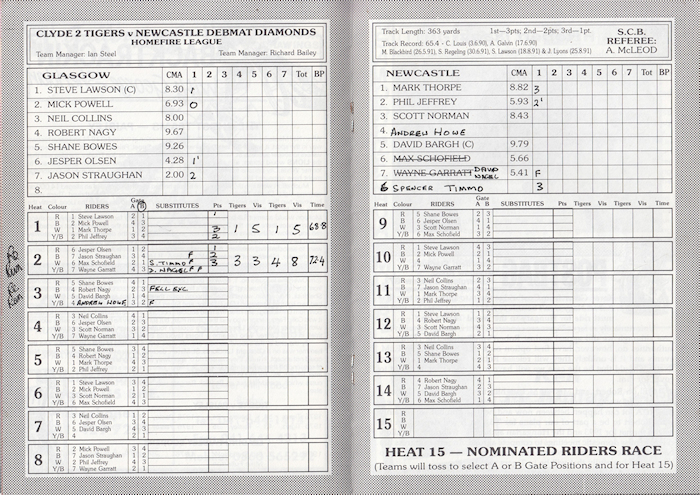 CLYDE 2 TIGERS v NEWCASTLE DEBMAT DIAMONDS
HOMEFIRE LEAGUE
Team Manager: Ian Steel Team Manager: Richard Bailey
GLASGOW CMA 1 2 3 4 5 6 7 Tot BP
1. STEVE LAWSON (C) 8.30 1'
2. MICK POWELL 6.93 0
3. NEIL COLLINS 8.00
4. ROBERT NAGY 9.67
5. SHANE BOWES 9.26
6. JESPER OLSEN 4.28 1'
7. JASON STRAUGHAN 2.00 2
8.
Heat Colour RIDERS Gate A B SUBSTITUTES Pts Tigers Vis Tigers Vis Time
1 R 1 Steve Lawson 2 1 1
B 2 Mick Powell 4 3
W 1 Mark Thorpe 1 2 3 1 5 1 5 68.8
Y/B 2 Phil Jeffrey 3 4 2
2 R 6 Jesper Olsen 1
B 7 Jason Straughan F 2
W 6 Max Schofield S. TIMMO F 3 3 3 4 8 72.4
Y/B 7 Wayne Garratt D. NAGEL F F
3 R 5 Shane Bowes
B 4 Robert Nagy FELL EXC
W 5 David Bargh
Y/B 4 ANDREW HOWE 3 2 F
4 R 3 Neil Collins
B 6 Jesper Olsen
W 3 Scott Norman
Y/B 7 Wayne Garratt
5 R 5 Shane Bowes
B 4 Robert Nagy
W 1 Mark Thorpe
Y/B 2 Phil Jeffrey
6 R 1 Steve Lawson
B 2 Mick Powell
W 3 Scott Norman
Y/B 6 Max Schofield
7 R 3 Neil Collins
B 6 Jesper Olsen
W 5 David Bargh
Y/B 4
8 R 2 Mick Powell
B 7 Jason Straughan
W 2 Phil Jeffrey
Y/B 7 Wayne Garratt
Track Length: 363 yards 1st—3pts; 2nd—2pts; 3rd—1pt.
Track Record: 65.4 - C. Louis (3.6.90), A. Galvin (17.6.90)
M. Blackbird (26.5.91), S. Regeling (30.6.91), S. Lawson (18.8.91) & J. Lyons (25.8.91)
S.C.B.
REFEREE:
A. McLEOD
NEWCASTLE CMA 1 2 3 4 5 6 7 Tot BP
1. MARK THORPE 8.82 3
2. PHIL JEFFREY 5.93 2'
3. SCOTT NORMAN 8.43
4. ANDREW HOWE
5. DAVID BARGH (C) 9.79
6. MAX SCHOFIELD 5.66
7. WAYNE GARRATT DAVID NAGEL 5.41 F
6 SPENCER TIMMO 3
Heat Colour RIDERS Gate A B SUBSTITUTES Pts Tigers Vis Tigers Vis Time
9 R 5 Shane Bowes
B 6 Jesper Olsen
W 3 Scott Norman
Y/B 6 Max Schofield
10 R 1 Steve Lawson
B 2 Mick Powell
W 4
Y/B 7 Wayne Garratt
11 R 3 Neil Collins
B 7 Jason Straughan
W 1 Mark Thorpe
Y/B 2 Phil Jeffrey
12 R 1 Steve Lawson
B 4 Robert Nagy
W 3 Scott Norman
Y/B 5 David Bargh
13 R 5 Shane Bowes
B 3 Neil Collins
W 1 Mark Thorpe
Y/B 4
14 R 4 Robert Nagy
B 7 Jason Straughan
W 5 David Bargh
Y/B 6 Max Schofield
15 R
B
W
Y/B
HEAT 15 — NOMINATED RIDERS RACE
(Teams will toss to select A or B Gate Positions and for Heat 15)